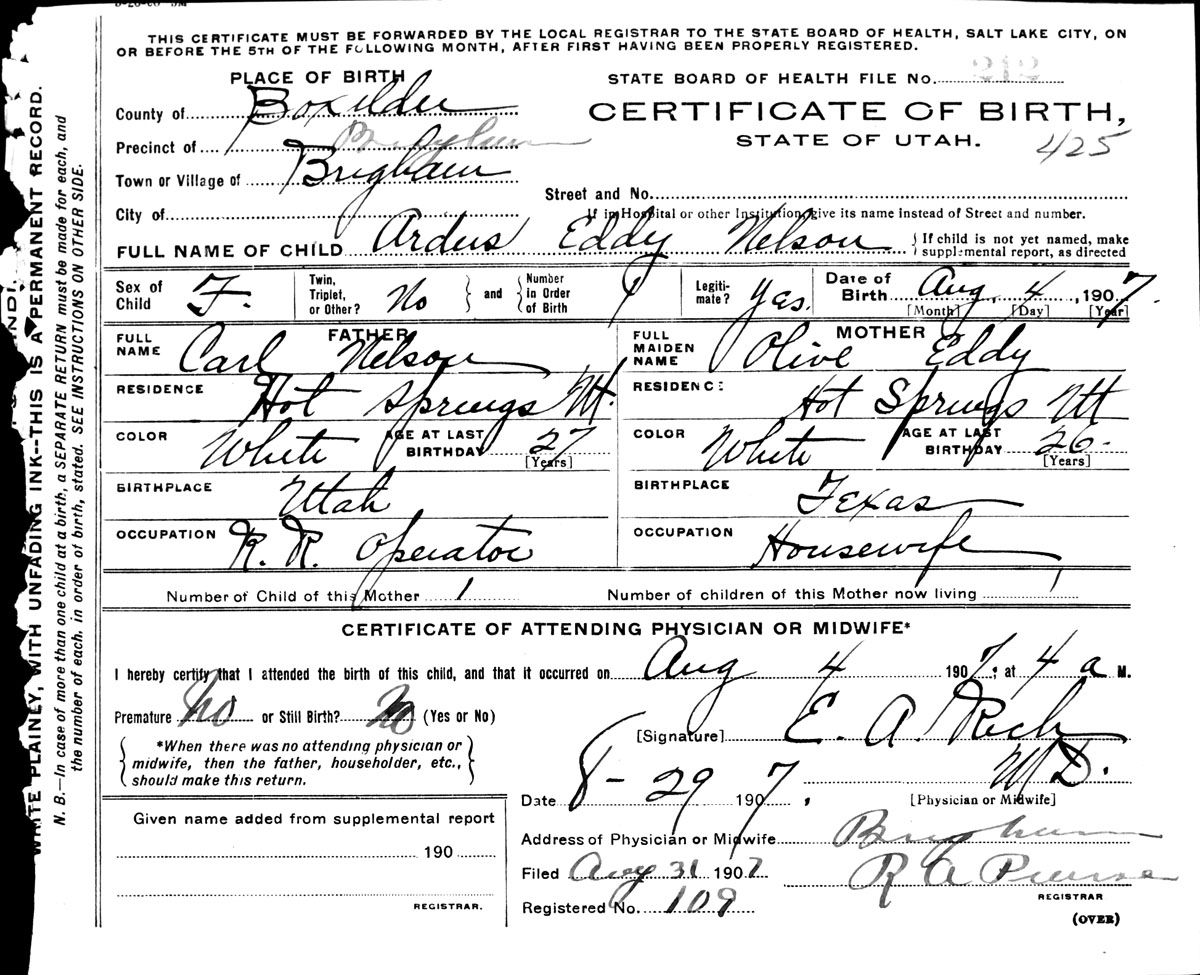 THIS CERTIFICATE MUST BE FORWARDED BY THE LOCAL REGISTRAR TO THE STATE BOARD OF HEALTH, SALT LAKE CITY, ON
OR BEFORE THE 5TH OF THE FOLLOWING MONTH, AFTER FIRST HAVING BEEN PROPERLY REGISTERED.
PLACE OF BIRTH
STATE BOARD OF HEALTH FILE No. 212
County of Boxelder
CERTIFICATE OF BIRTH,
Precinct of Brigham
STATE OF UTAH. 425
Town or Village of Brigham
Street and No.
City of
If in Hospital or other Institution, give its name instead of Street and number.
FULL NAME OF CHILD Ardus Eddy Nelson { If child is not yet named, make supplemental report, as directed
Sex of Child F. Twin, Triplet, or Other? No } and { Number in Order of Birth 1 Legitimate? Yas. Date of Birth Aug. 4, 1907.
[Month] [Day] [Year]
FATHER
FULL NAME Carl Nelson
RESIDENCE Hot Springs Ut.
COLOR White AGE AT LAST BIRTHDAY 27
[Years]
BIRTHPLACE Utah
OCCUPATION R. R. Operator
MOTHER
FULL MAIDEN NAME Olive Eddy
RESIDENCE Hot Springs Ut
COLOR White AGE AT LAST BIRTHDAY 26-
[Years]
BIRTHPLACE Texas
OCCUPATION Housewife
Number of Child of this Mother 1 Number of children of this Mother now living 1
CERTIFICATE OF ATTENDING PHYSICIAN OR MIDWIFE*
I hereby certify that I attended the birth of this child, and that it occurred on Aug 4 1907; at 4 a M.
Premature No or Still Birth? No (Yes or No)
{ *When there was no attending physician or }
midwife, then the father, householder, etc.,
should make this return.
[Signature] E. A. Rich
M D.
[Physician or Midwife]
Date 8-29 1907.
Address of Physician or Midwife Brigham
Filed Aug 31 1907 R A Pierse
REGISTRAR
Registered No. 109
(OVER)
Given name added from supplemental report
190
REGISTRAR.
WRITE PLAINLY, WITH UNFADING INK--THIS IS A PERMANENT RECORD.
N. B.—In case of more than one child at a birth, a SEPARATE RETURN must be made for each, and
the number of each, in order of birth, stated. SEE INSTRUCTIONS ON OTHER SIDE.